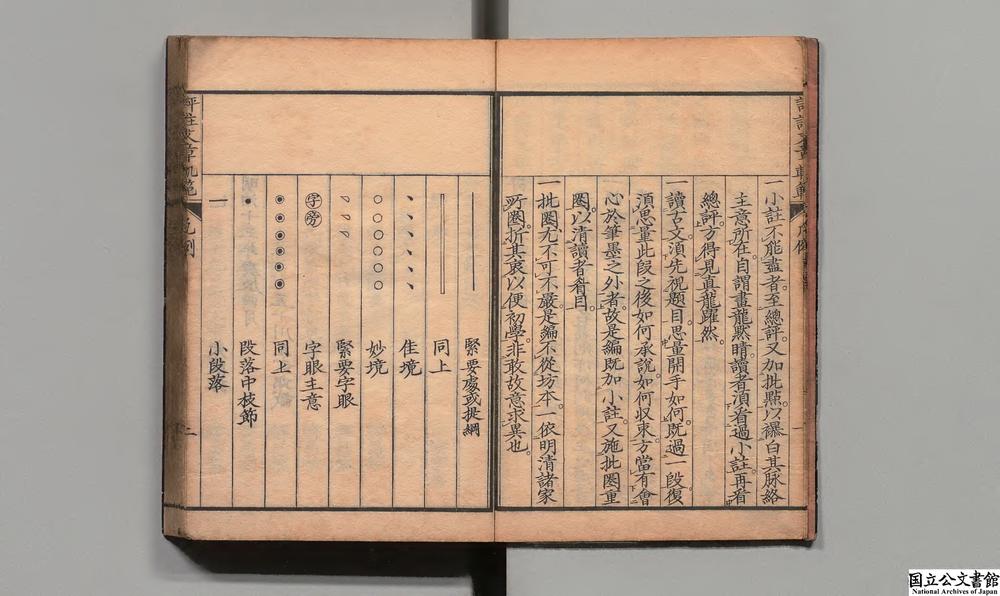 一小註不能盡者至總評又加批點以襮白其脉絡
主意所在自謂畫龍㸃晴讀者須看過小註再看
總評方得見眞龍躍然
讀古文須先視題目思量開手如何既過一段復
須思量此段之後如何承說如何収束方當有會
心於筆墨之外者故是編既加小註又施批圈重
圈以清讀者眷目
一批圈尤不可不嚴是編不從坊本一依明清諸家
所圈折其衷以便初學非敢故意求異也
緊要處或提綱
同上
佳境
妙境
緊要字眼
字旁 字眼主意
同上
段落中枝節
小段落
評註文章軌範
凡例
二
国立公文書館
National Archives of Japan